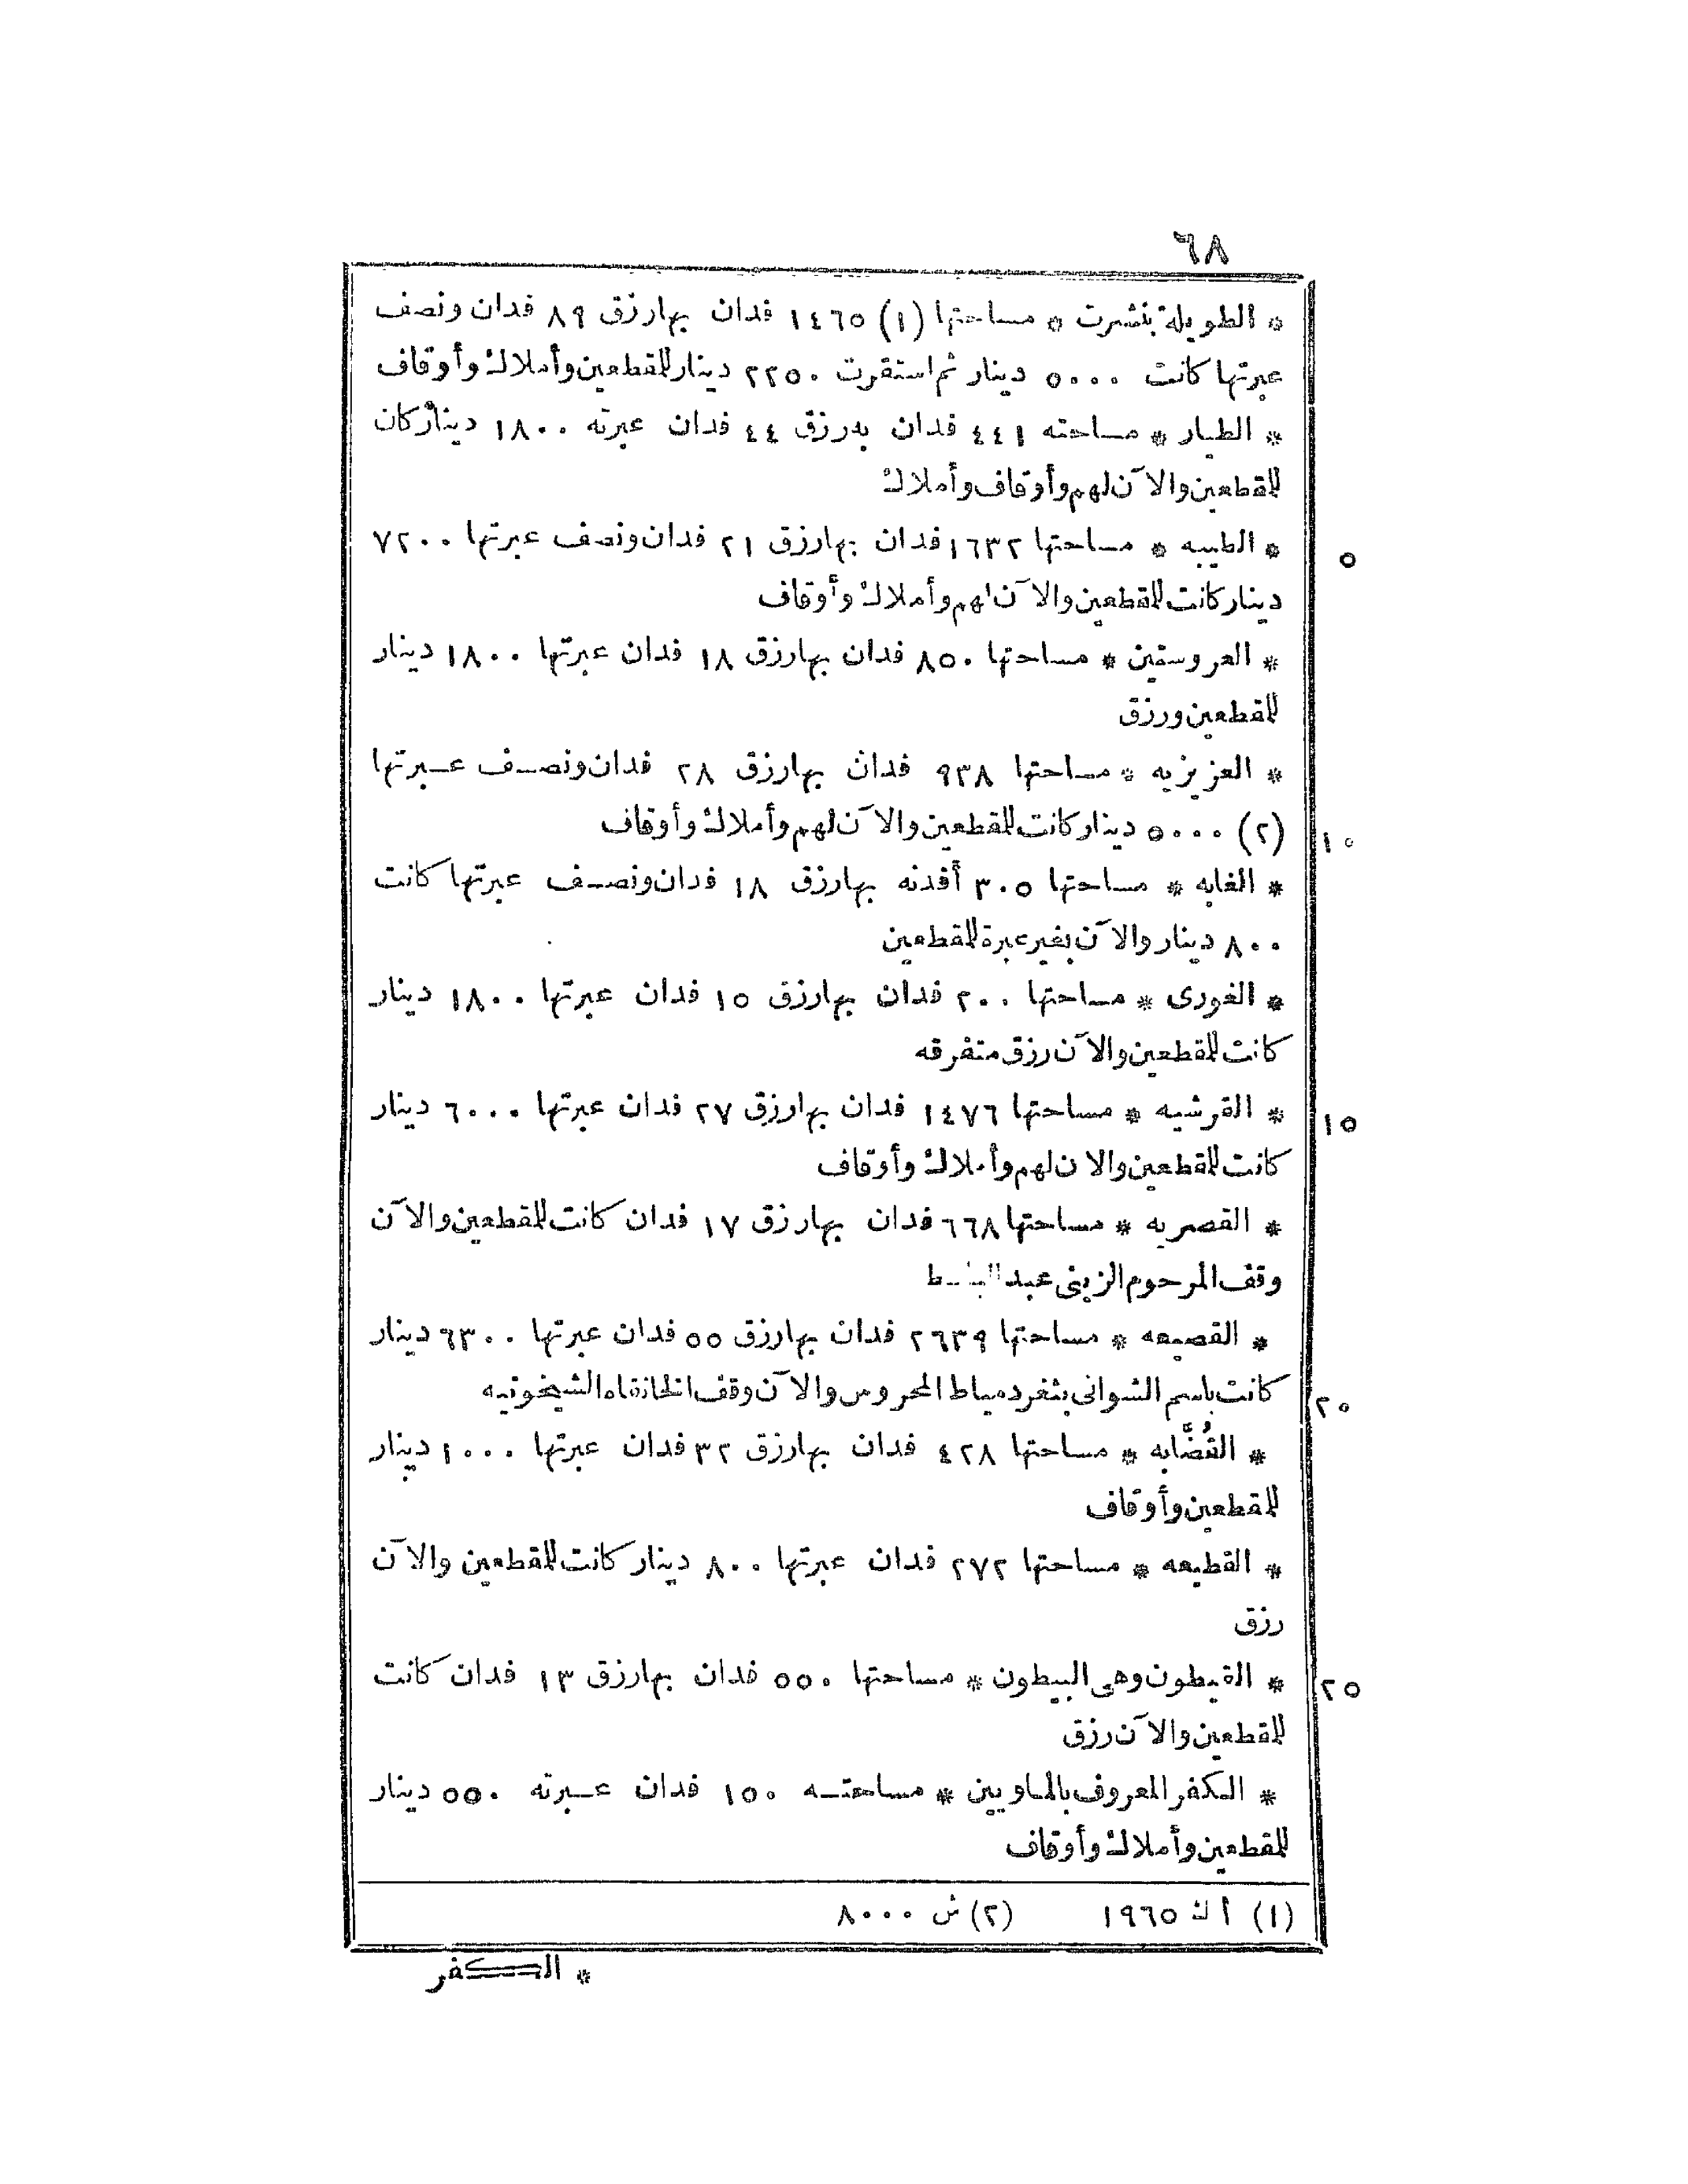 ٦٨
* الطويلة بنشرت * مساحتها (١) ١٤٦٥ فدان بها رزق ٨٩ فدان ونصف
عبرتها كانت ٥٠٠٠ دينار ثم استقرت ٢٢٥٠ دينار للمقطعين وأملاك وأوقاف
* الطيار * مساحته ٤٤١ فدان به رزق ٤٤ فدان عبرته ١٨٠٠ دينار كان
للمقطعين والآن لهم وأوقاف وأملاك
٥
* الطيبه * مساحتها ١٦٣٢ فدان بها رزق ٢١ فدان ونصف عبرتها ٧٢٠٠
دينار كانت للمقطعين والآن لهم وأملاك وأوقاف
* العروستين * مساحتها ٨٥٠ فدان بها رزق ١٨ فدان عبرتها ١٨٠٠ دينار
للمقطعين ورزق
* العزيزيه * مساحتها ٩٣٨ فدان بها رزق ٢٨ فدان ونصف عبرتها
١٠
(٢) ٥٠٠٠ دينار كانت للمقطعين والآن لهم وأملاك وأوقاف
* الغابه * مساحتها ٣٠٥ أفدنه بها رزق ١٨ فدان ونصف عبرتها كانت
٨٠٠ دينار والآن بغير عبرة للمقطعين
* الغورى * مساحتها ٢٠٠ فدان بها رزق ١٥ فدان عبرتها ١٨٠٠ دينار
كانت للمقطعين والآن رزق متفرقه
١٥
* القرشيه * مساحتها ١٤٧٦ فدان بها رزق ٢٧ فدان عبرتها ٦٠٠٠ دينار
كانت للمقطعين والان لهم وأملاك وأوقاف
* القصريه * مساحتها ٦٦٨ فدان بها رزق ١٧ فدان كانت للمقطعين والآن
وقف المرحوم الزينى عبد
* القصيعه * مساحتها ٢٦٣٩ فدان بها رزق ٥٥ فدان عبرتها ٦٣٠٠ دينار
٢٠
كانت باسم الشوانى بثغر دمياط المحروس والآن وقف الخانقاه الشيخونيه
* القُضَّابه * مساحتها ٤٢٨ فدان بها رزق ٣٢ فدان عبرتها ١٠٠٠ دينار
للمقطعين وأوقاف
* القطيعه * مساحتها ٢٧٢ فدان عبرتها ٨٠٠ دينار كانت للمقطعين والآن
رزق
٢٥
* القيطون وهى البيطون * مساحتها ٥٥٠ فدان بها رزق ١٣ فدان كانت
للمقطعين والآن رزق
* الكفر المعروف بالماويين * مساحته ١٥٠ فدان عبرته ٥٥٠ دينار
للمقطعين وأملاك وأوقاف
(١) أ ك ١٩٦٥ (٢) ش ٨٠٠٠
* الكفر